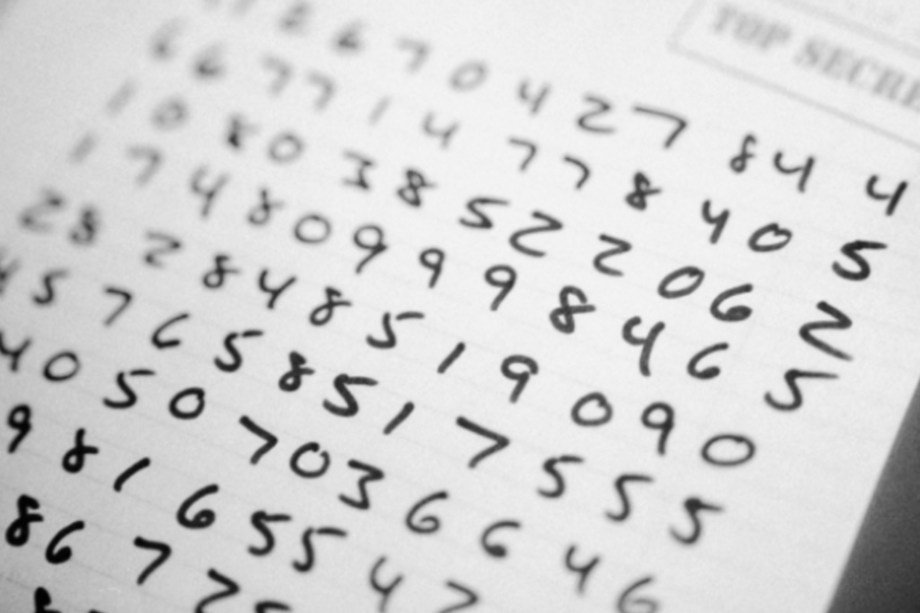 TOP SECRE
2 6 7 0 4 2 7 8 4 4
6 6 7 7 1 4 7 7 8 4 0 5
1 0 8 0 3 8 5 2 2 0 6 2
1 7 4 8 0 9 9 9 8 4 6 5
2 8 2 8 4 8 5 1 9 0 9 0
5 7 6 5 8 5 1 7 5 5 5
4 0 5 0 7 0 3 6 6 4 6
9 8 1 6 5 5 4
8 6 7